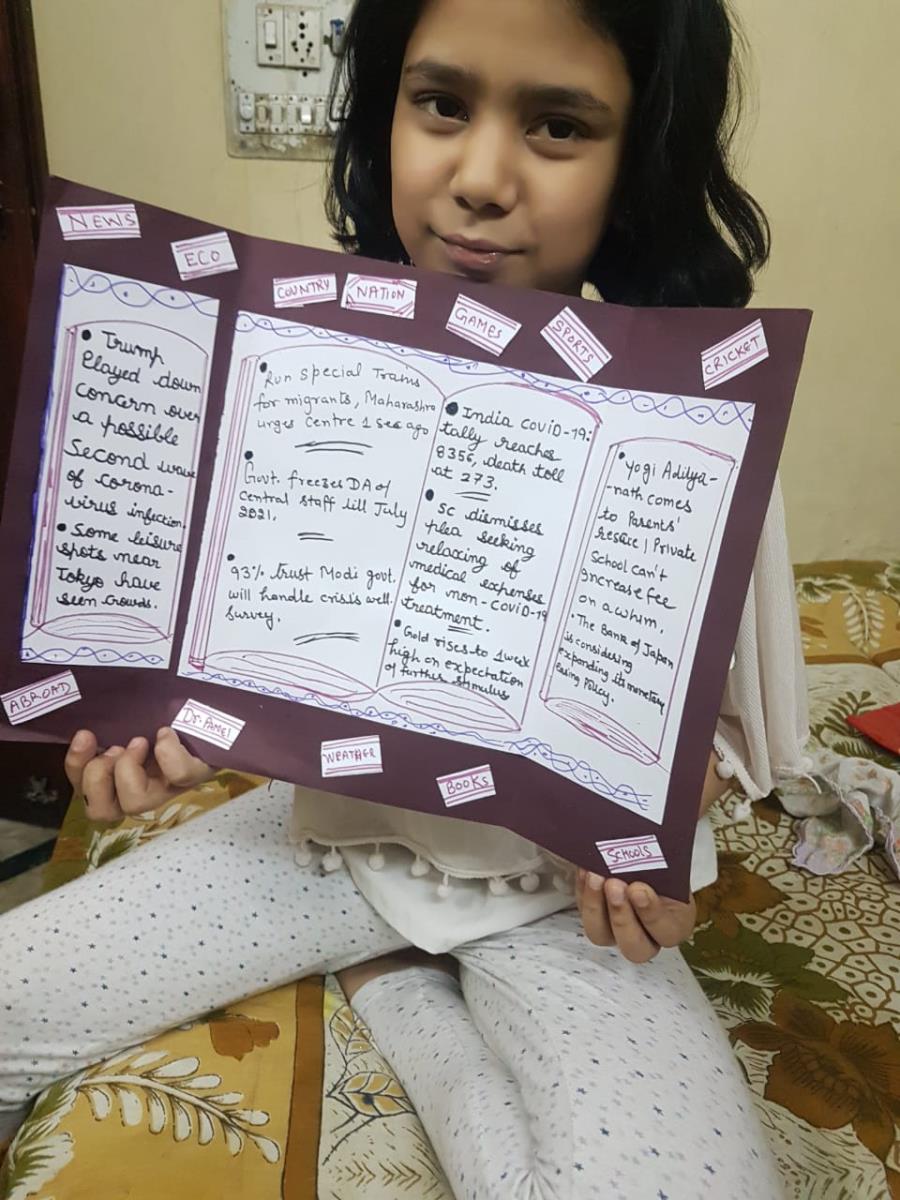 NEWS
ECO
COUNTRY
NATION
GAMES
SPORTS
CRICKET
• Trump
Played down
concern over
a possible
Second wave
of corona-
virus infection.
• Some leisure
spots near
Tokyo have
seen crowds.
• Run special Trains
for migrants, Maharashra
urges Centre 1 sec ago
• Govt. freezes DA of
central staff till July
2021.
• 93% trust Modi govt.
will handle crisis well.
Survey.
• India covid-19:
tally reaches
8356, death toll
at 273.
• SC dismisses
plea seeking
relaxing of
medical expenses
for non-covid-19
treatment.
• Gold rises to 1 week
high on expectation
of further stimulus
• Yogi Aditya-
-nath comes
to Parents'
rescue | Private
School can't
increase fee
on a whim.
• The Bank of Japan
is considering
expanding its monetary
easing Policy.
ABROAD
WEATHER
BOOKS
SCHOOLS